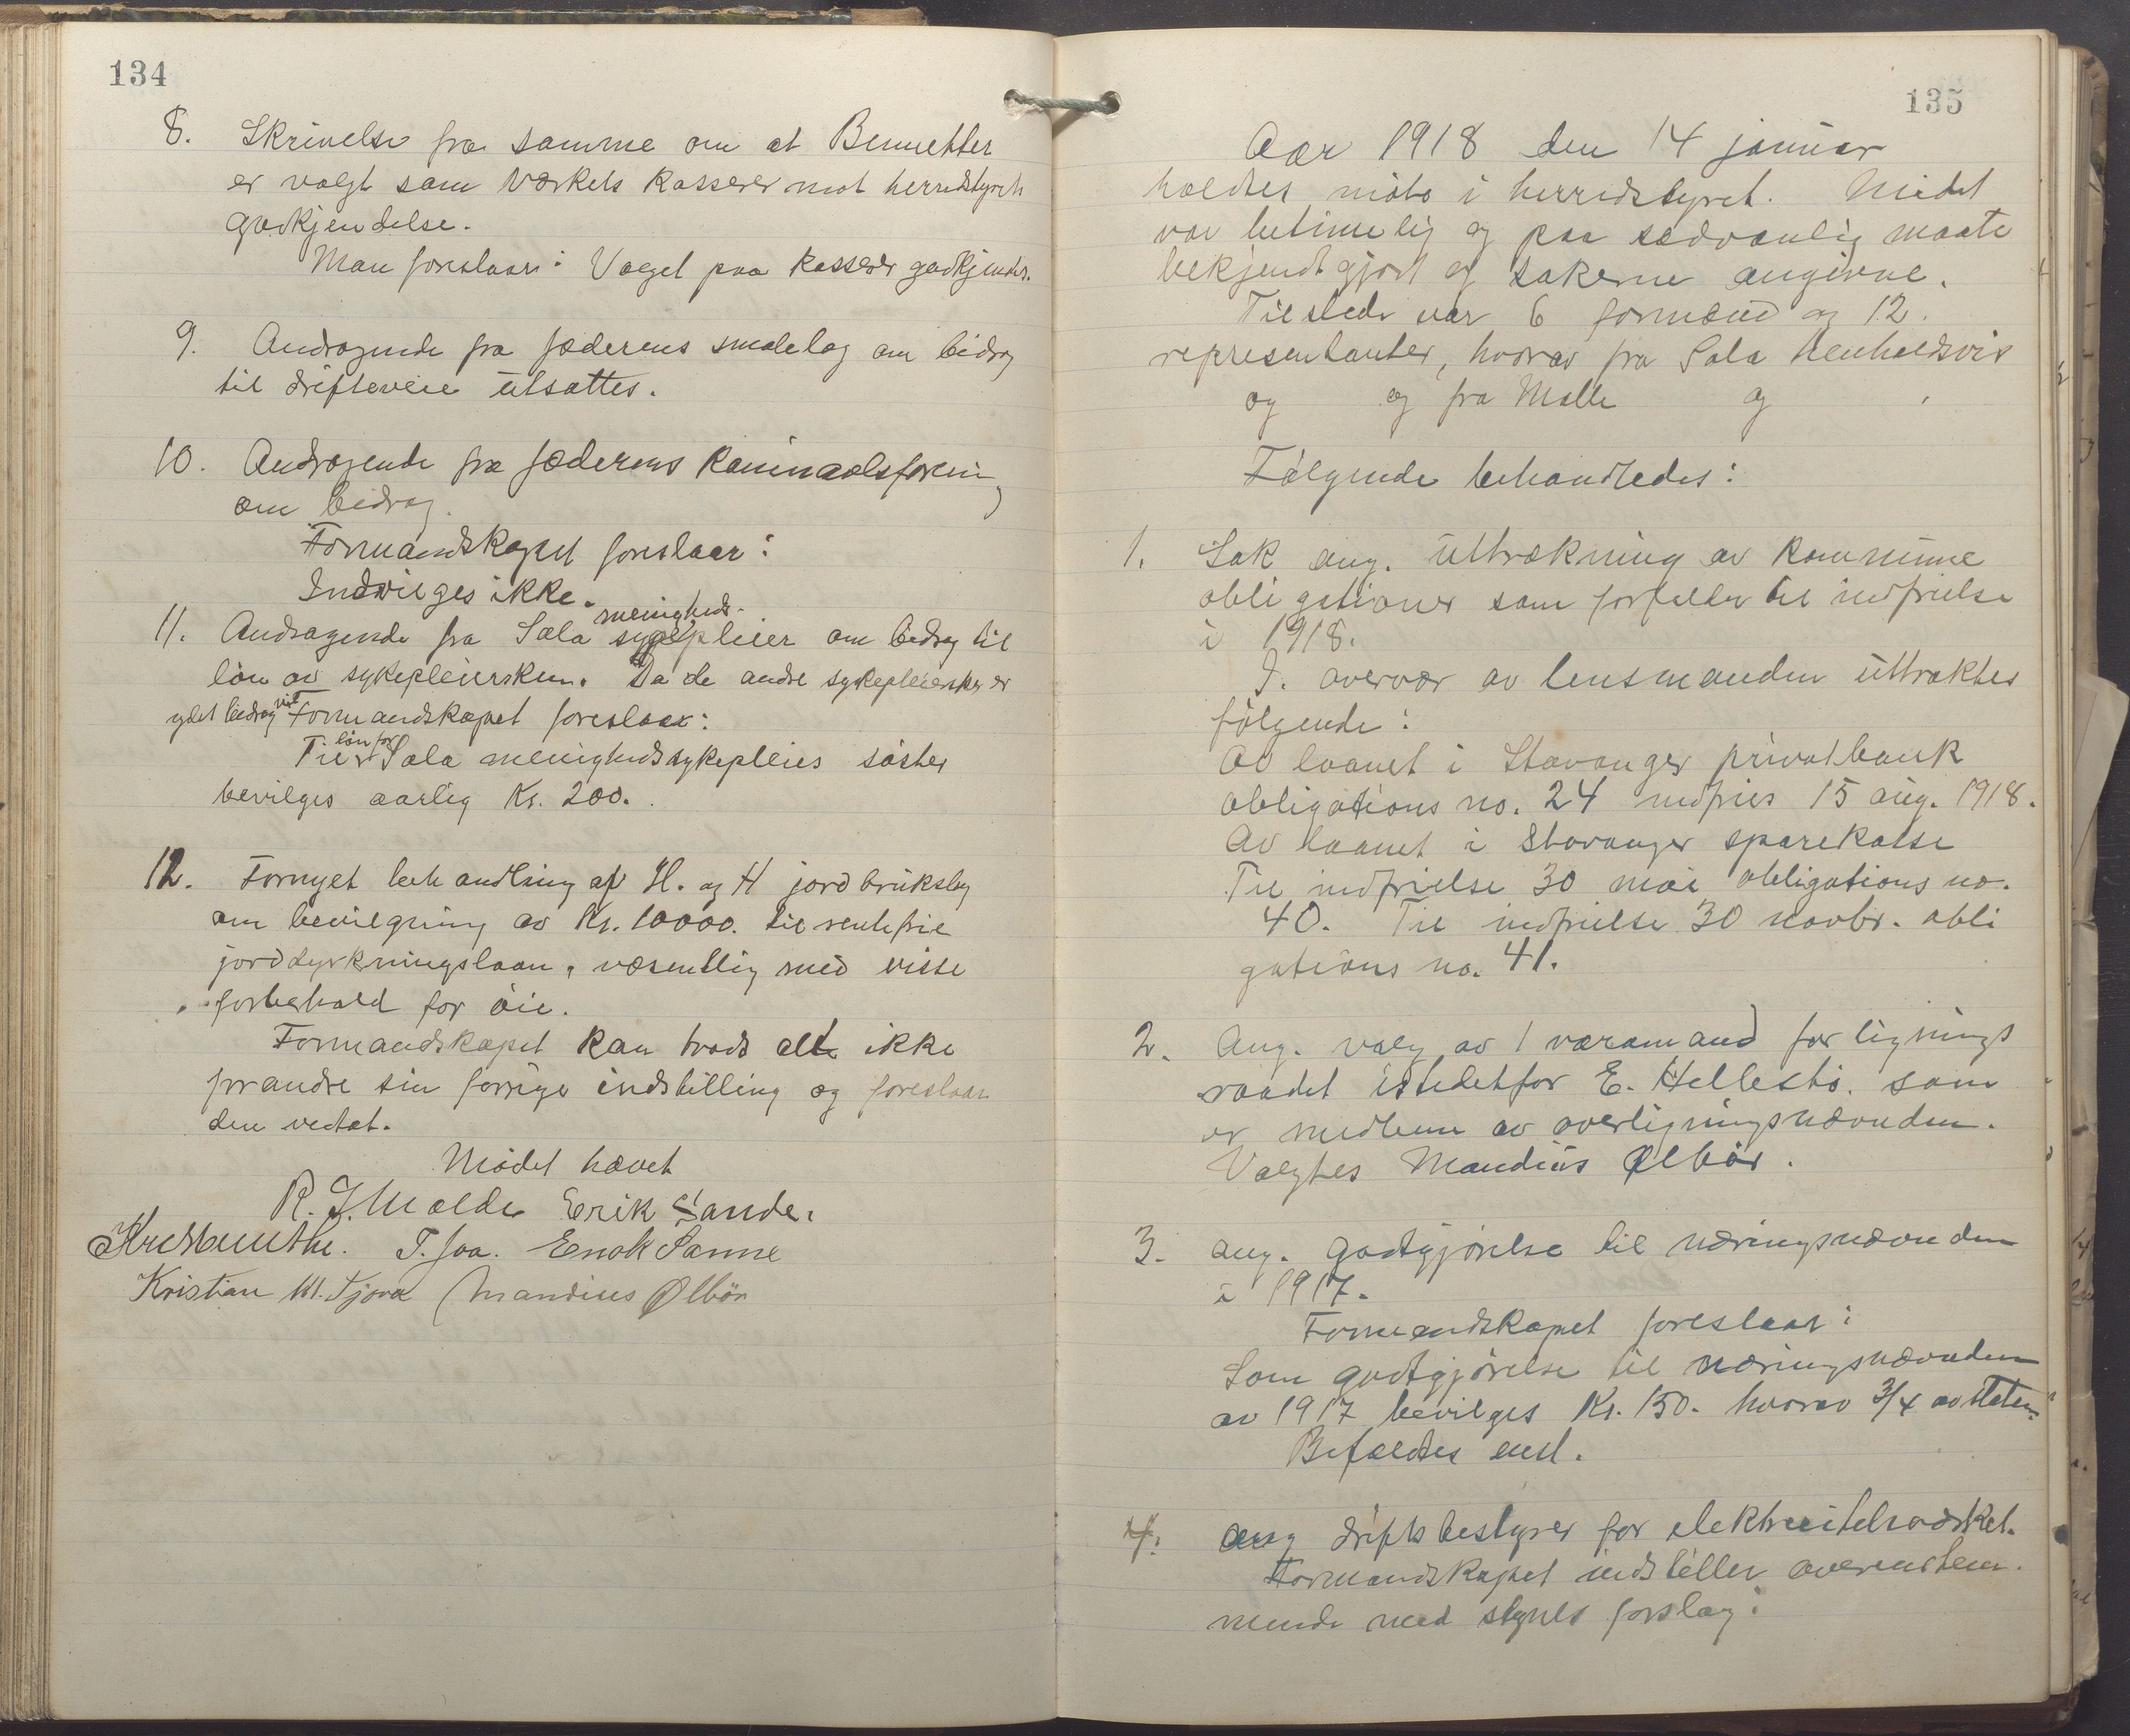 134
8. Skrivelse fra samme om at Bennetter
er valgt som værkets kasserer mot herredstyrets
godkjendelse.
Man foreslaar: Valget paa kasserer godkjendes.
9. Andragende fra Jæderens smalelag om bidrag
til drifteveie utsattes.
10. Andragende fra Jæderens kaninavlsforening
om bidrag.
Formandskapet foreslaar:
Indvilges ikke.
menigheds-
11. Andragende fra Sola sygepleier om bidrag til
løn av sykepleiersken. Da de andre sykepleiersker er
ydet bidrag vil Formandskapet foreslaar:
løn for
Til Sola menighedssykepleies søster
bevilges aarlig Kr. 200.
12. Fornyet behandling af H. og H jordbrukslag
om bevilgning av Kr. 10000. til rentefrie
jorddyrkningslaan, væsentlig med visse
forbehold for øie.
Formandskapet kan trods alt ikke
forandre sin forrige indstilling og foreslaar
den vedtat.
Mødet hævet
R. J. Molde Erik Sande.
T. Joa. Enok Sømme
Kristian M. Tjora Mandius Ølbør
135
Aar 1918 den 14 januar
holdtes møte i herredstyret. Mødet
var betimelig og paa sædvanlig maate
bekjendtgjort og sakerne angivne.
Tilstede var 6 formænd og 12
representanter, hvorav fra Sola henholdsvis
og og fra Malle og .
Følgende behandledes:
1. Sak ang. uttrækning av kommune
obligationer som forfalder til indfrielse
i 1918.
I overvær av lensmanden uttraktes
følgende:
Av laanet i Stavanger privatbank
obligations no. 24 indfries 15 aug. 1918.
Av laanet i Stavanger sparekasse
Til indfrielse 30 mai obligations no.
40. Til indfrielse 30 novbr. obli
gations no. 41.
2. Ang. valg av 1 varamand for lignings
raadet istedetfor E. Hellestø. som
er medlem av overligningsnævnden.
Valgtes Mandius Ølbør.
3. ang. godtgjørelse til næringsnævnden
i 1917.
Formandskapet foreslaar:
Som godtgjørelse til næringsnævnden
av 1917 bevilges Kr. 150. hvorav 3/4 av staten.
Bifaldtes enst.
4. ang driftsbestyrer for elektricitetsværket.
Formandskapet indstiller overenstem.
mende med styrets forslag: